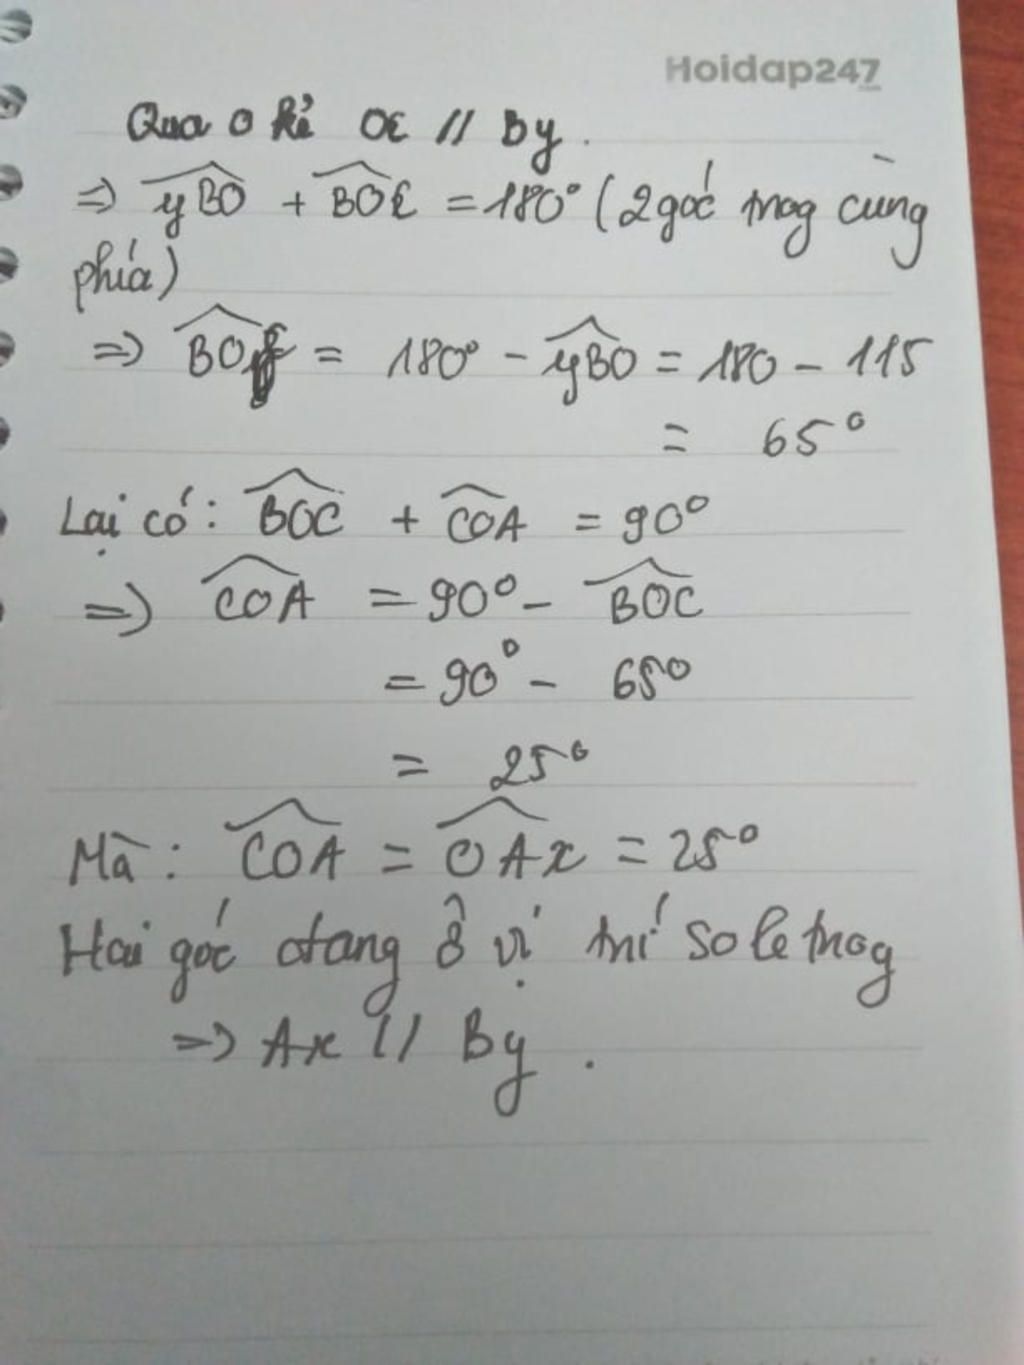 Hoidap247
Qua O kẻ OC // By.
=> yBO + BOC = 180° (2 góc trog cùng
phía)
=> BO = 180° - yBO = 180 - 115
= 65°
Lại có: BOC + COA = 90°
=> COA = 90° - BOC
= 90° - 65°
= 25°
Mà: COA = OAx = 25°
Hai góc đang ở vị trí so le trog
=> Ax // By.